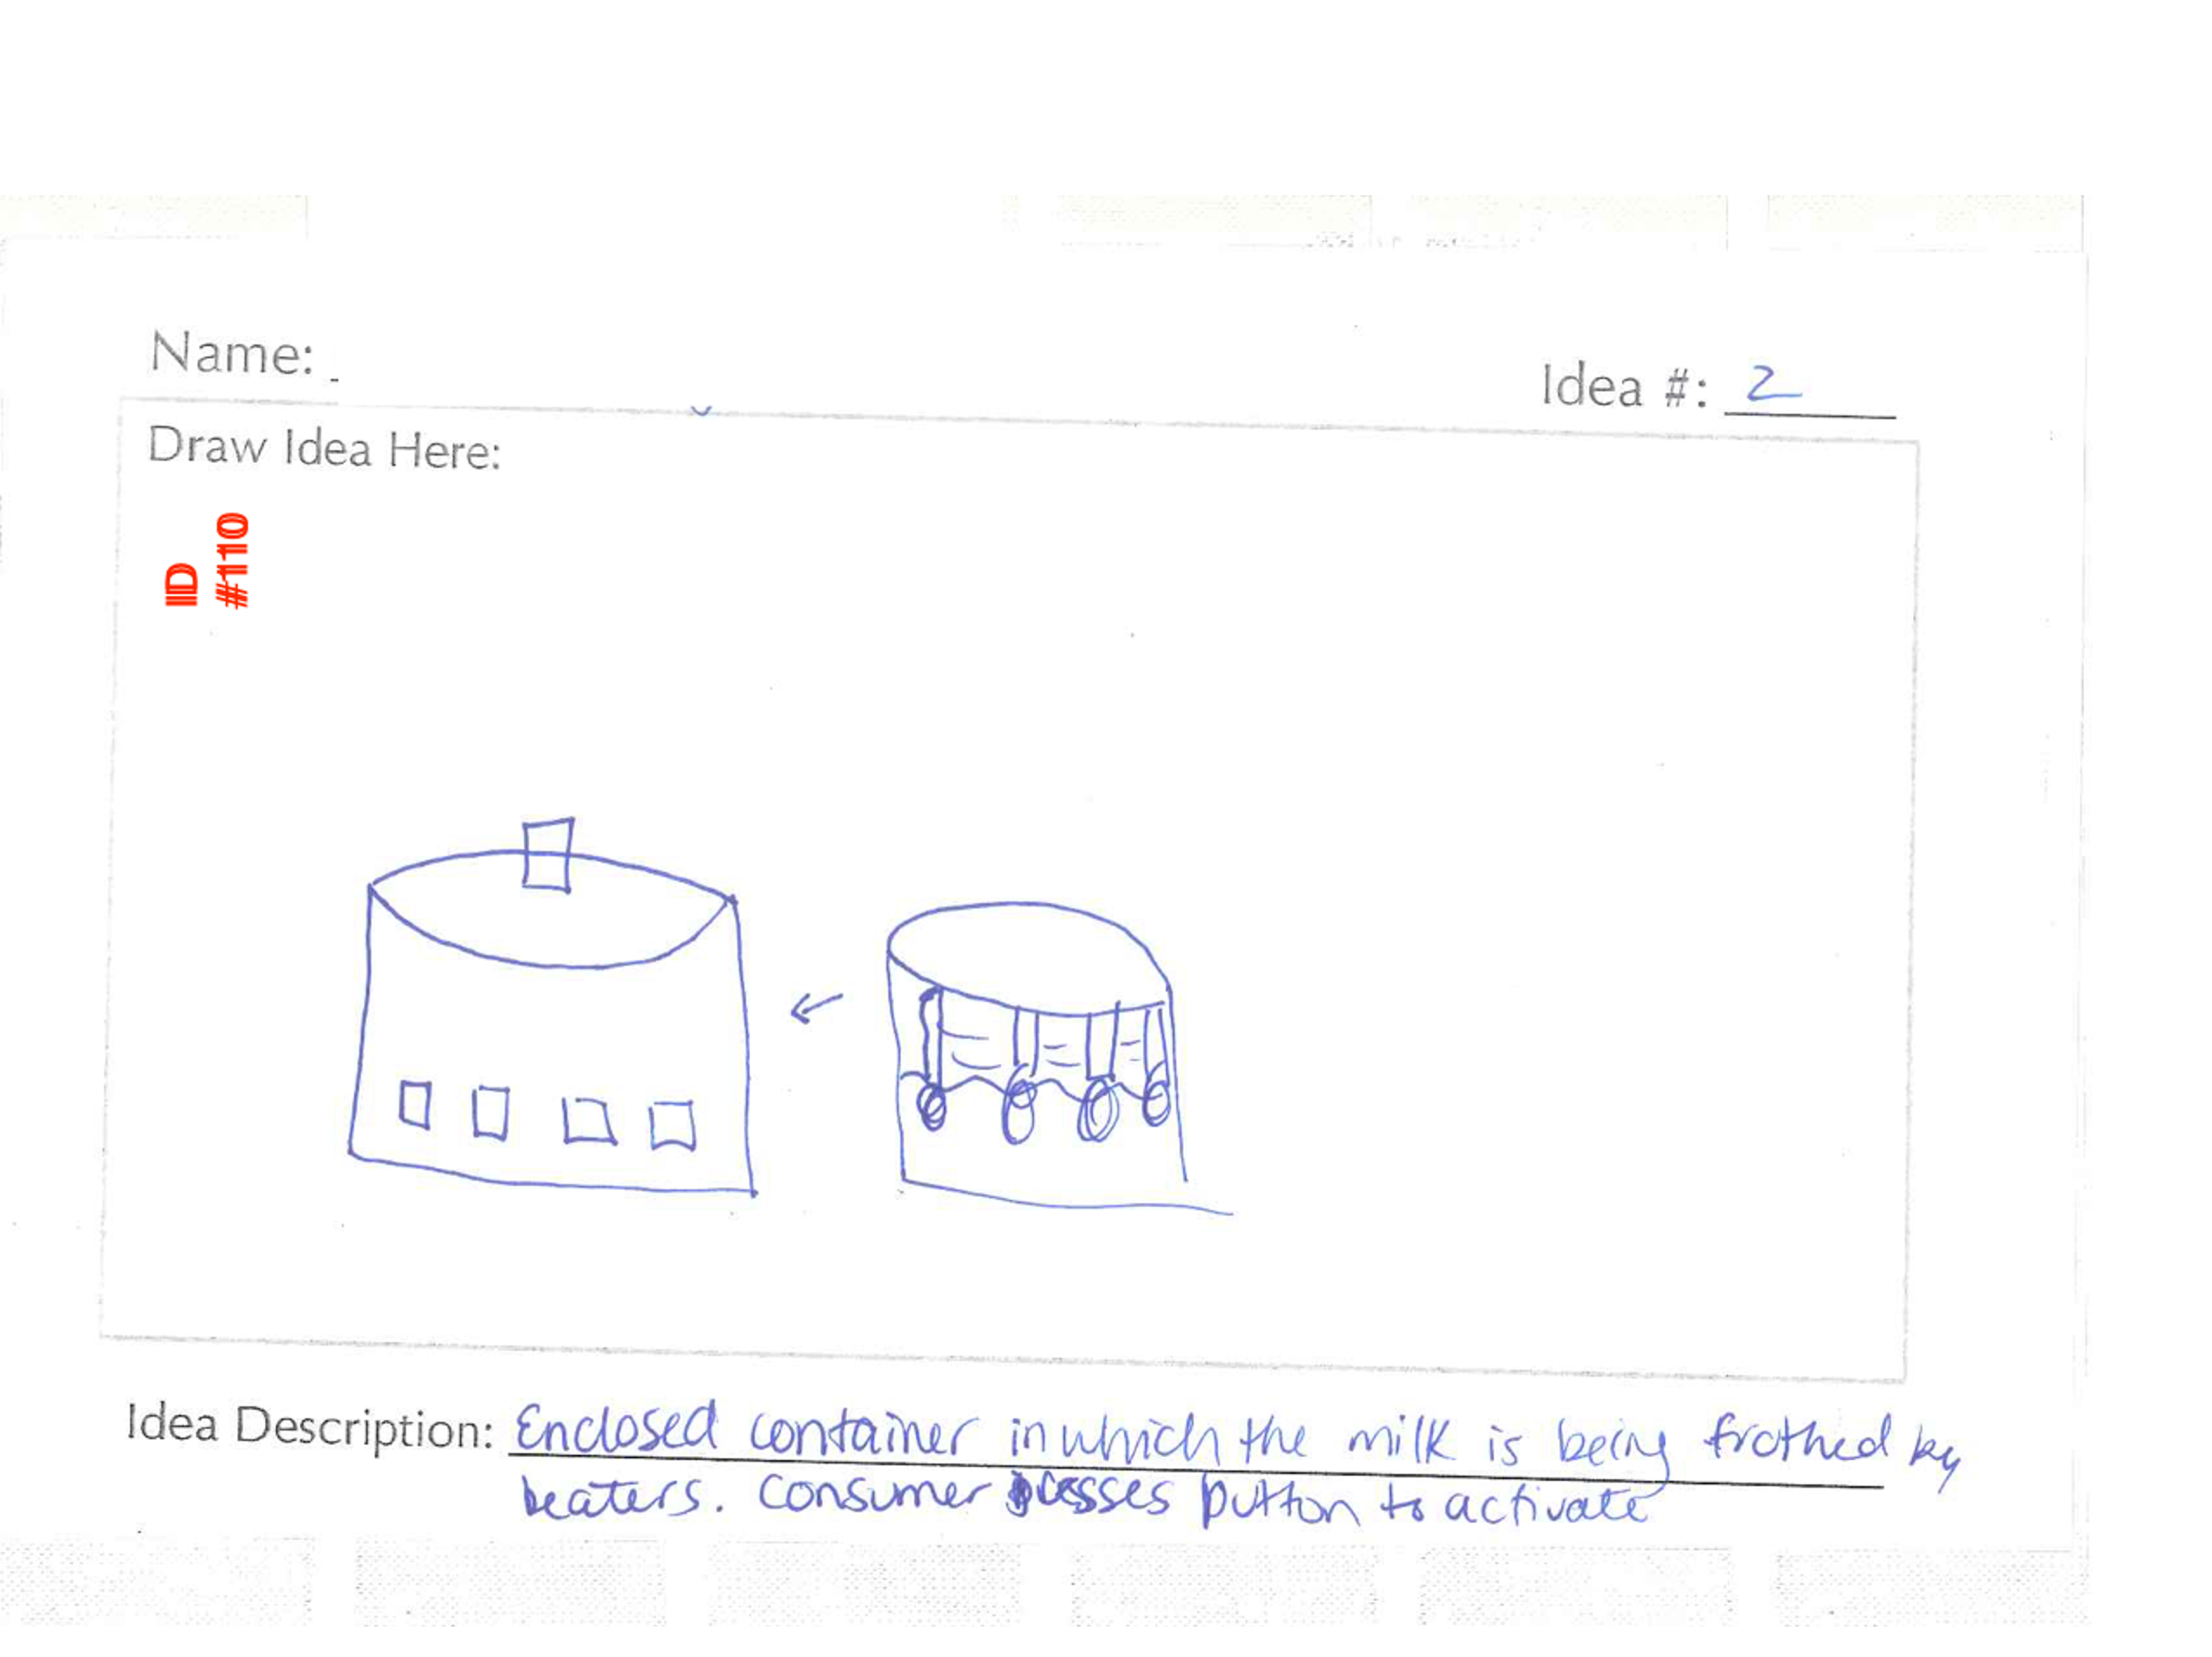 Name:
Idea #: 2
Draw Idea Here:
ID
#110
Idea Description: Enclosed container in which the milk is being frothed by
beaters. Consumer presses button to activate